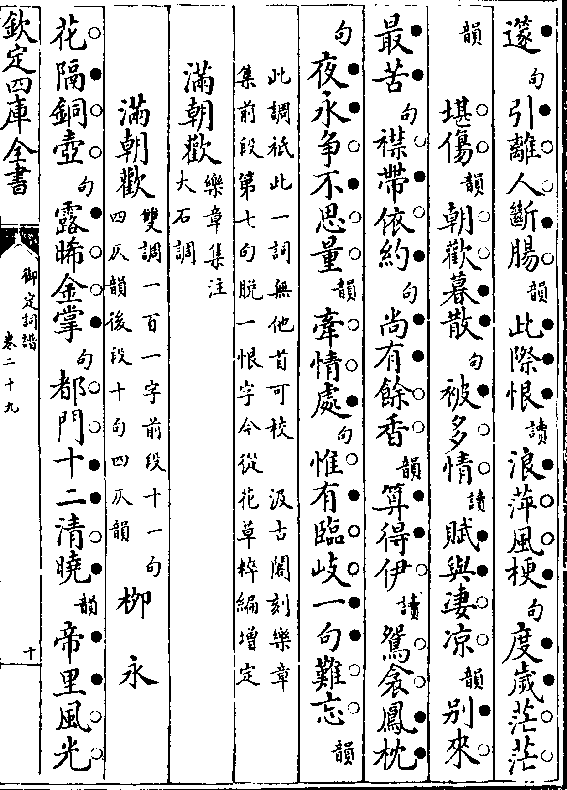 邃句引離人斷腸韻此際恨讀浪萍風梗句度歲茫茫
韻堪傷韻朝歡暮散句被多情讀賦與淒凉韻别來
最苦句襟帶依約句尚有餘香韻算得伊讀鴛衾鳳枕
句夜永争不思量韻牽情處句惟有臨岐一句難忘韻
此調祗此一詞無他首可校 汲古閣刻樂章
集前段第七句脱一恨字今從花草粹編增定
滿朝歡樂章集注大石調
滿朝歡雙調一百一字前段十一句四仄韻後段十句四仄韻 柳永
花隔銅壺句露晞金掌句都門十二清曉韻帝里風光
欽定四庫全書
御定詞譜
卷二十九
十